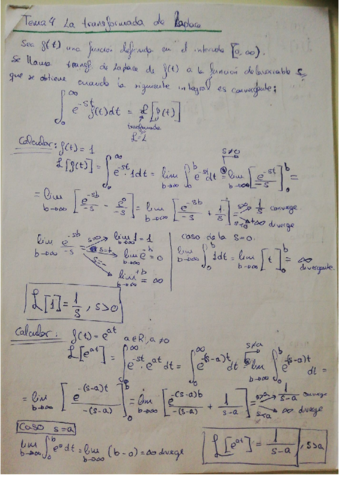 Tema 9 La transformada de Laplace
Sea f(t) una función definida en el intervalo [0, ∞).
Se llama transf. de Laplace de f(t) a la función de la variable s,
que se obtiene cuando la siguiente integral es convergente:
∫₀^∞ e^{-st} f(t)dt = ℒ[f(t)]
transformada
Calcular: f(t) = 1
ℒ[f(t)] = ∫₀^∞ e^{-st} 1dt = lim_{b→∞} ∫₀^b e^{-st} dt = (s≠0) lim_{b→∞} [e^{-st}/-s]₀^b =
= lim_{b→∞} [e^{-sb}/-s - e^0/-s] = lim_{b→∞} [e^{-sb}/-s + 1/s] s>0 1/s converge
s<0 ∞ diverge
lim_{b→∞} e^{-sb}/-s
caso de la s=0.
lim_{b→∞} ∫₀^b 1dt = lim_{b→∞} [t]₀^b = ∞ divergente.
ℒ[1] = 1/s, s>0
Calcular: f(t) = e^{at} a∈ℝ, a≠0
ℒ[e^{at}] = ∫₀^∞ e^{-st} · e^{at} dt = ∫₀^∞ e^{-(s-a)t} dt = (s≠a) lim_{b→∞} ∫₀^b e^{-(s-a)t} dt =
= lim_{b→∞} [e^{-(s-a)t}/-(s-a)]₀^b = lim_{b→∞} [e^{-(s-a)b}/-(s-a) + 1/(s-a)] s>a 1/(s-a) converge
s<a ∞ diverge
Caso s=a
lim_{b→∞} ∫₀^b e^0 dt = lim_{b→∞} (b-0) = ∞ diverge
ℒ[e^{at}] = 1/(s-a), s>a